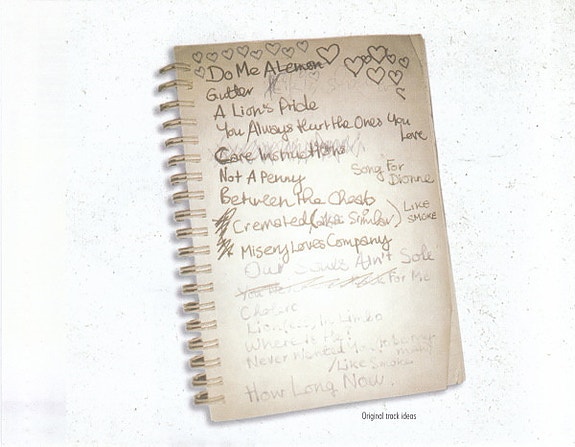 Do Me A Lemon
Gutter
A Lion's Pride
You Always Hurt the Ones You
Love
Care Instructions
Not A Penny
Song For
Dionne
Between The Cheats
Cremated (aka
LIKE
SMOKE
Misery Loves Company
Our Ain't Sole
For Me
In Limbo
Where is
Never Wanted
/Like Smoke
How Long Now
Original track ideas